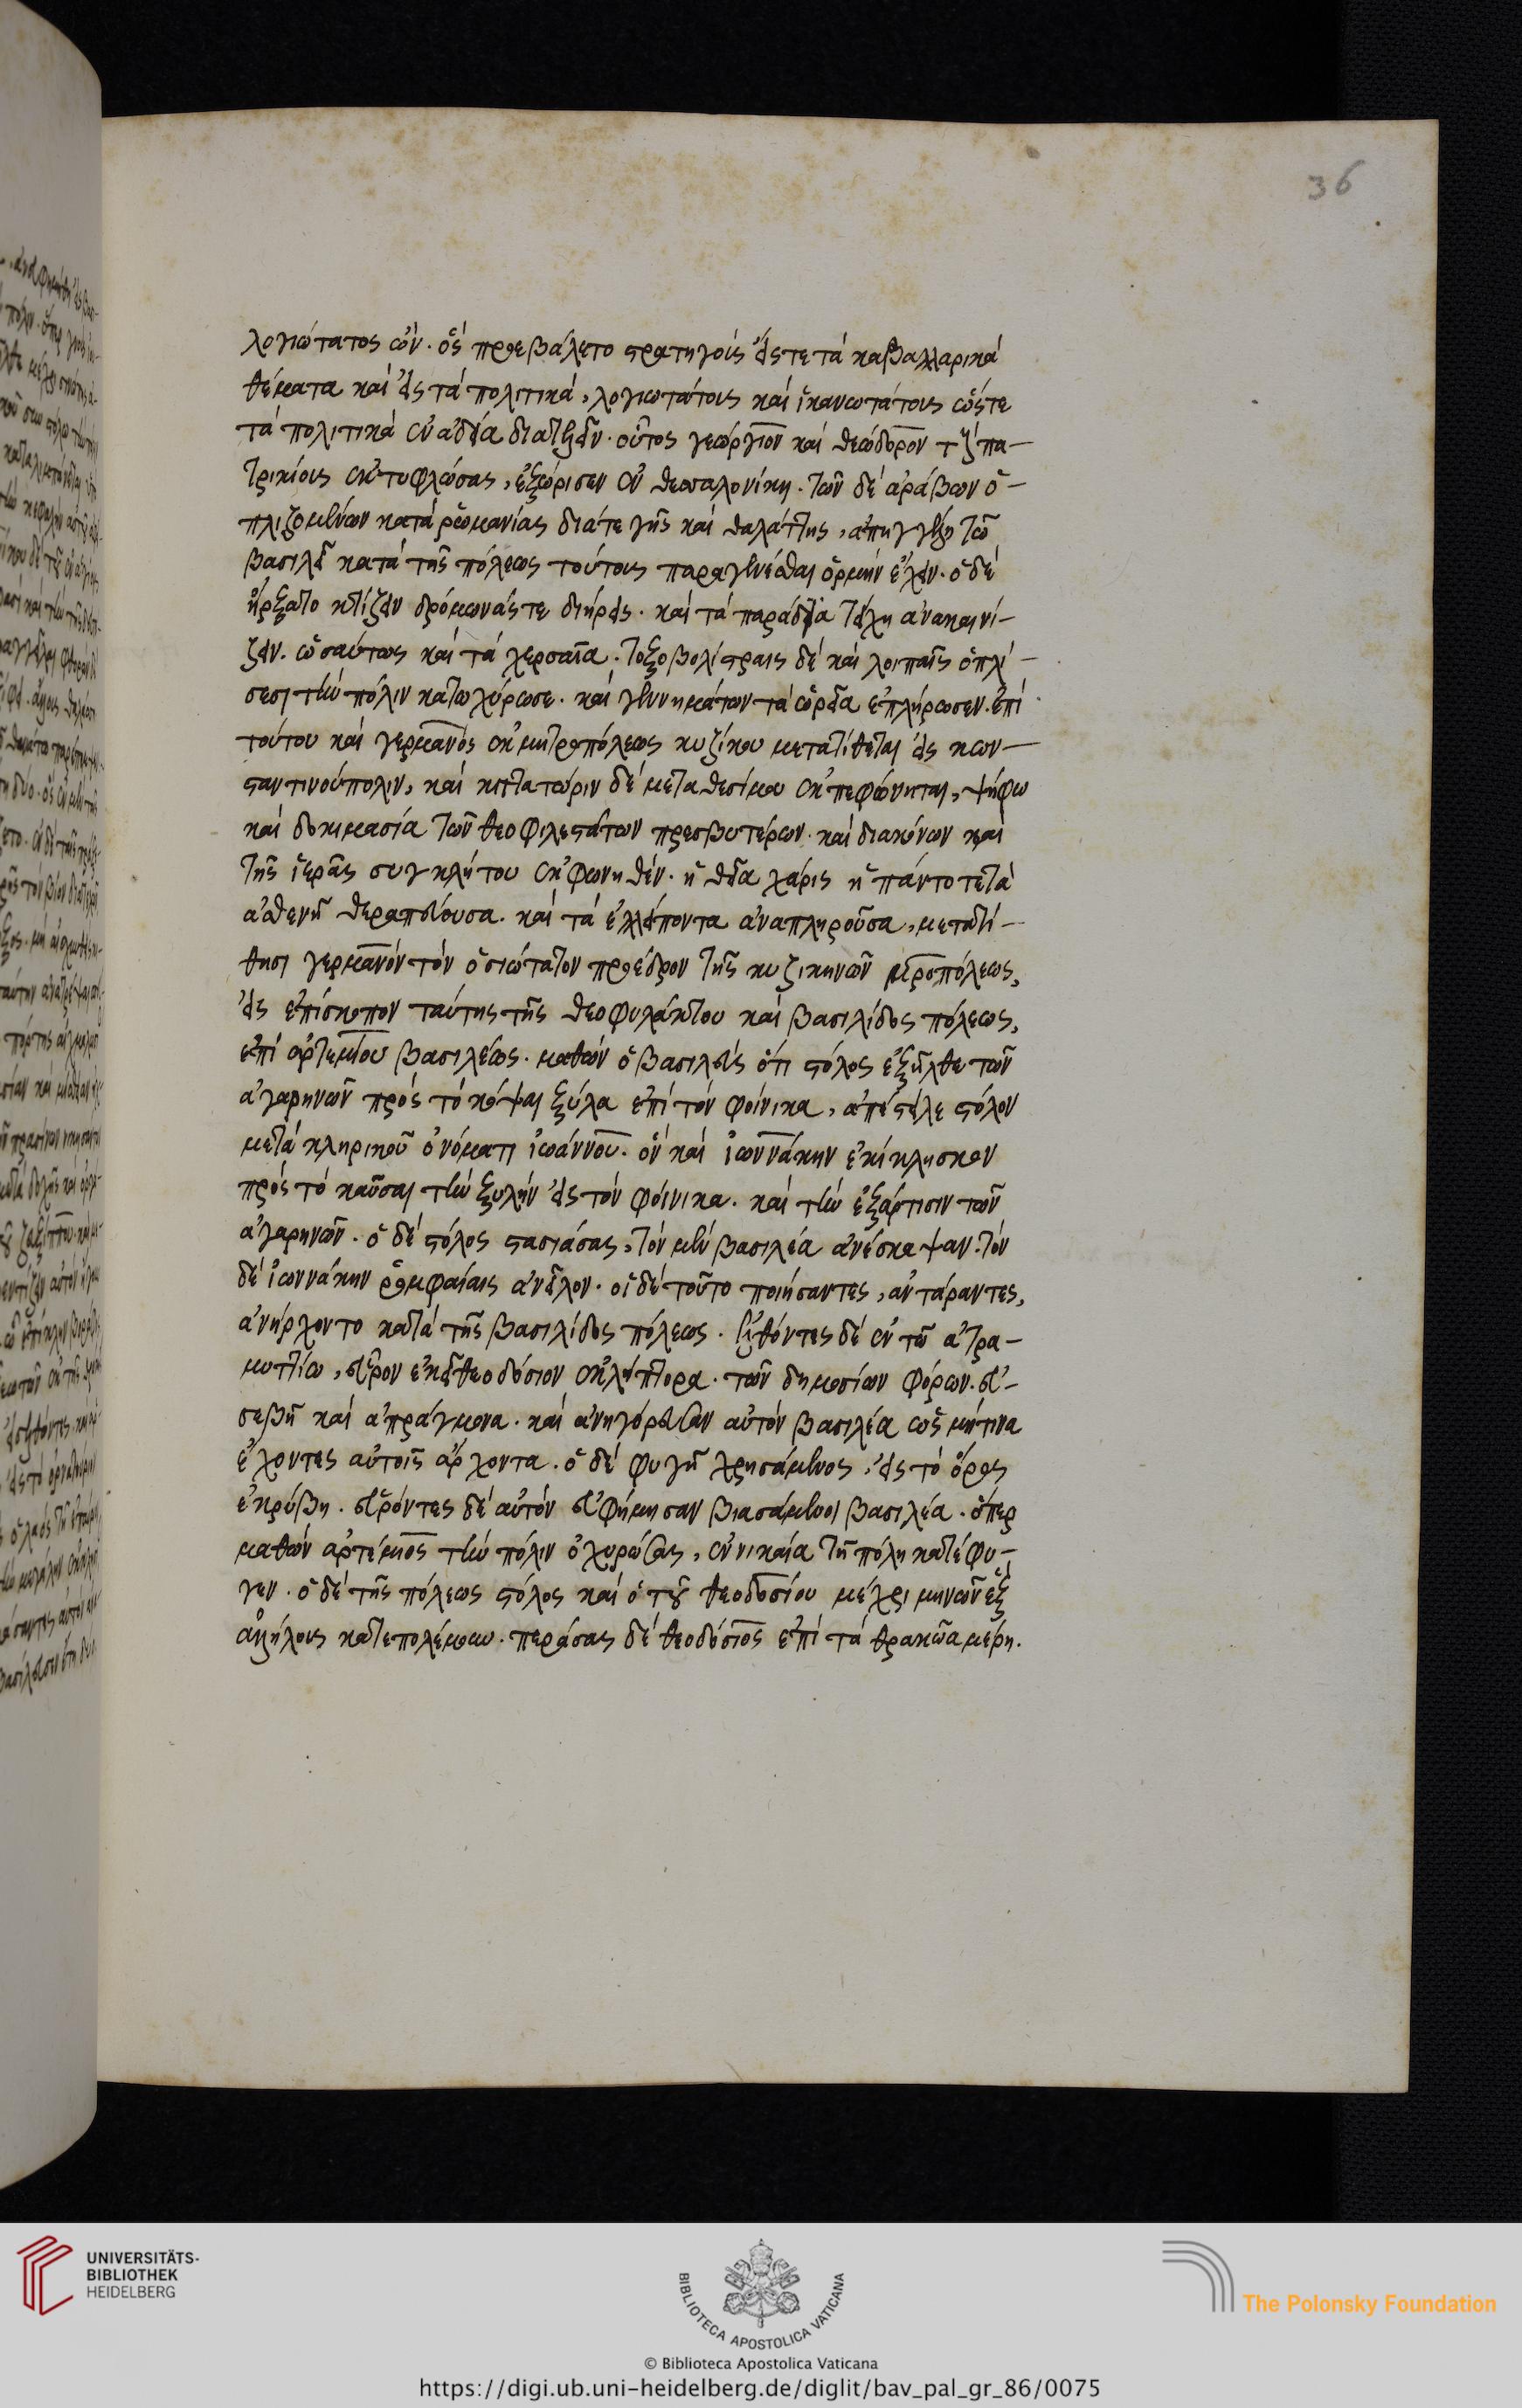 36
λογιώτατος ὤν. ὃς προεβάλετο στρατηγοὺς εἴς τε τὰ καβαλλαρικὰ
θέματα καὶ εἰς τὰ πολιτικά, λογιωτάτους καὶ ἱκανωτάτους ὥστε
τὰ πολιτικὰ ἐν ἀδεία διατίξειν. οὗτος γεώργιον καὶ θεόδορον τοὺς πα-
τρικίους ἐκτυφλώσας, ἐξώρισεν ἐν θεσσαλονίκη. τῶν δὲ ἀράβων ὁ-
πλιζομένων κατὰ ῥωμανίας διά τε γῆς καὶ θαλάττης, ἀπηγγέλθη τῶ
βασιλεῖ κατὰ τῆς πόλεως τούτους παραγενέσθαι ὁρμὴν ἔχειν. ὁ δὲ
ἤρξατο κτίζειν δρόμωνάς τε διήρεις. καὶ τὰ παράλια τείχη ἀνακαινί-
ζειν. ὡσαύτως καὶ τὰ χερσαῖα. τοξοβολίστραις δὲ καὶ λοιπαῖς ὁπλί-
σεσι τὴν πόλιν κατωχύρωσε. καὶ γεννημάτων τὰ ὡρεῖα ἐπλήρωσεν. ἐπὶ
τούτου καὶ γερμανὸς ἐκ μητροπόλεως κυζίκου μετατίθεται εἰς κων-
σταντινούπολιν, καὶ κιττατώριν δὲ μεταθεσίμου ἐκπεφώνηται, ψήφω
καὶ δοκιμασία τῶν θεοφιλεστάτων πρεσβυτέρων. καὶ διακόνων καὶ
τῆς ἱερᾶς συγκλήτου ἐκφωνηθέν. ἡ θεία χάρις ἡ πάντοτε τὰ
ἀσθενῆ θεραπεύουσα. καὶ τὰ ἐλλείποντα ἀναπληροῦσα, μετατί-
θησι γερμανὸν τὸν ὁσιώτατον πρόεδρον τῆς κυζικηνῶν μητροπόλεως,
εἰς ἐπίσκοπον ταύτης τῆς θεοφυλάκτου καὶ βασιλίδος πόλεως,
ἐπὶ ἀρτεμίου βασιλέως. μαθὼν ὁ βασιλεὺς ὅτι στόλος ἐξῆλθε τῶν
ἀγαρηνῶν πρὸς τὸ κόψαι ξύλα ἐπὶ τὸν φοίνικα, ἀπέστειλε στόλον
μετὰ κληρικοῦ ὀνόματι ἰωάννου. ὃν καὶ ἰωννάκην ἐκίκλησκον
πρὸς τὸ καῦσαι τὴν ξυλὴν εἰς τὸν φοίνικα. καὶ τὴν ἐξάρτισιν τῶν
ἀγαρηνῶν. ὁ δὲ στόλος στασιάσας, τὸν μὲν βασιλέα ἀνέσκαψαν. τὸν
δὲ ἰωννάκην ῥομφαίαις ἀνεῖλον. οἱ δὲ τοῦτο ποιήσαντες, ἀντάραντες,
ἀνήρχοντο κατὰ τῆς βασιλίδος πόλεως. ἐλθόντες δὲ ἐν τῶ ἀτρα-
μυττίω, εὗρον ἐκεῖ θεοδόσιον ἐκλήπτορα. τῶν δημοσίων φόρων. εὐ-
σεβῆ καὶ ἀπράγμονα. καὶ ἀνηγόρευσαν αὐτὸν βασιλέα ὡς μή τινα
ἔχοντες αὐτοῖς ἄρχοντα. ὁ δὲ φυγῆ χρησάμενος, εἰς τὸ ὄρος
ἐκρύβη. εὑρόντες δὲ αὐτὸν εὐφήμησαν βιασάμενοι βασιλέα. ὅπερ
μαθὼν ἀρτέμιος τὴν πόλιν ὀχυρώσας, ἐν νικαία τῆ πόλη κατέφυ-
γεν. ὁ δὲ τῆς πόλεως στόλος καὶ ὁ τοῦ θεοδοσίου μέχρι μηνῶν ἓξ
ἀλλήλους κατεπολέμουν. περάσας δὲ θεοδόσιος ἐπὶ τὰ θρακῶα μέρη.
UNIVERSITÄTS-
BIBLIOTHEK
HEIDELBERG
BIBLIOTECA APOSTOLICA VATICANA
The Polonsky Foundation
© Biblioteca Apostolica Vaticana
https://digi.ub.uni-heidelberg.de/diglit/bav_pal_gr_86/0075